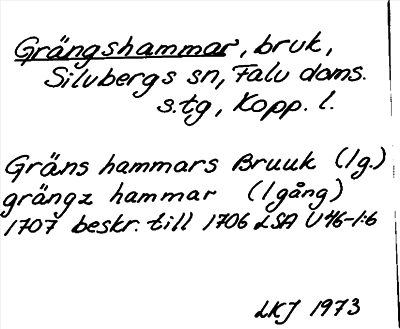 Grängshammar, bruk,
Silvbergs sn, Falu doms.
s.tg, Kopp. l.
Gräns hammars Bruuk (1g.)
grängz hammar (1gång)
1707 beskr. till 1706 LSA U46-1:6
LKJ 1973